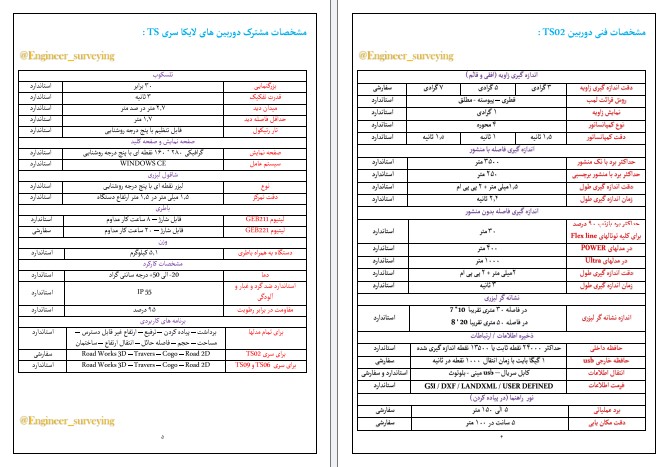 مشخصات فنی دوربین TS02 :
@Engineer_surveying
اندازه گیری زاویه (افقی و قائم)
دقت اندازه گیری زاویه ۳ گرادی ۵ گرادی ۷ گرادی سفارشی
روش قرائت لمب قطری - پیوسته - مطلق استاندارد
نمایش زاویه ۱ گرادی استاندارد
نوع کمپانساتور ۴ محوره استاندارد
دقت کمپانساتور ۱,۵ ثانیه ۱ ثانیه ۱,۵ ثانیه استاندارد
اندازه گیری فاصله با منشور
حداکثر برد با تک منشور ۳۵۰۰ متر استاندارد
حداکثر برد با منشور برچسبی ۲۵۰ متر استاندارد
دقت اندازه گیری طول ۱,۵میلی متر + ۲ پی پی ام استاندارد
زمان اندازه گیری طول ۲,۴ ثانیه استاندارد
اندازه گیری فاصله بدون منشور
حداکثر برد بازتاب ۹۰ درصد
برای کلیه توتالهای Flex line ۳۰ متر استاندارد
در مدلهای POWER ۴۰۰ متر استاندارد
در مدلهای Ultra ۱۰۰۰ متر استاندارد
دقت اندازه گیری طول ۲میلی متر + ۲ پی پی ام استاندارد
زمان اندازه گیری طول ۳ ثانیه استاندارد
نشانه گر لیزری
در فاصله ۳۰ متری تقریبا 10 * 7
اندازه نشانه گر لیزری استاندارد
در فاصله ۵۰ متری تقریبا 20 * 8
ذخیره اطلاعات / ارتباطات
حافظه داخلی حداکثر ۲۴۰۰۰ نقطه ثابت یا ۱۳۵۰۰ نقطه اندازه گیری شده استاندارد
حافظه خارجی usb ۱ گیگا بایت با زمان انتقال ۱۰۰۰ نقطه در ثانیه سفارشی
انتقال اطلاعات کابل سریال – usb مینی - بلوتوث استاندارد و سفارشی
فرمت اطلاعات GSI / DXF / LANDXML / USER DEFINED استاندارد
نور راهنما (در پیاده کردن)
برد عملیاتی ۵ الی ۱۵۰ متر سفارشی
دقت مکان یابی ۵ سانت در ۱۰۰ متر سفارشی
۴
مشخصات مشترک دوربین های لایکا سری TS :
@Engineer_surveying
تلسکوپ
بزرگنمایی ۳۰ برابر استاندارد
قدرت تفکیک ۳ ثانیه استاندارد
میدان دید ۲,۷ متر در صد متر استاندارد
حداقل فاصله دید ۱,۷ متر استاندارد
تار رتیکول قابل تنظیم با پنج درجه روشنایی استاندارد
صفحه نمایش و صفحه کلید
صفحه نمایش گرافیکی ۲۸۰ * ۱۶۰ نقطه ای با پنج درجه روشنایی استاندارد
سیستم عامل WINDOWS CE استاندارد
شاقول لیزری
نوع لیزر نقطه ای با پنج درجه روشنایی استاندارد
دقت تمرکز ۱,۵ میلی متر در ۱,۵ متر ارتفاع دستگاه استاندارد
باطری
لیتیوم GEB211 قابل شارژ – ۸ ساعت کار مداوم استاندارد
لیتیوم GEB221 قابل شارژ – ۲۰ ساعت کار مداوم سفارشی
وزن
دستگاه به همراه باطری ۵,۱ کیلوگرم استاندارد
مشخصات کارکرد
دما ۲۰- الی ۵۰+ درجه سانتی گراد استاندارد
استاندارد ضد گرد و غبار و
آلودگی IP 55 استاندارد
مقاومت در برابر رطوبت ۹۵ درصد استاندارد
برنامه های کاربردی
برای تمام مدلها برداشت – پیاده کردن – ترفیع – ارتفاع غیر قابل دسترس – استاندارد
مساحت – حجم – فاصله حائل – انتقال ارتفاع – ساختمان
برای سری TS02 Road Works 3D – Travers – Cogo – Road 2D سفارشی
برای سری TS06 و TS09 Road Works 3D – Travers – Cogo – Road 2D استاندارد
@Engineer_surveying
۵